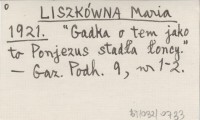 LISZKÓWNA Maria
1921. "Gadka o tem jako
to Ponjezus stadła łoncy."
— Gaz. Podh. 9, nr 1-2.